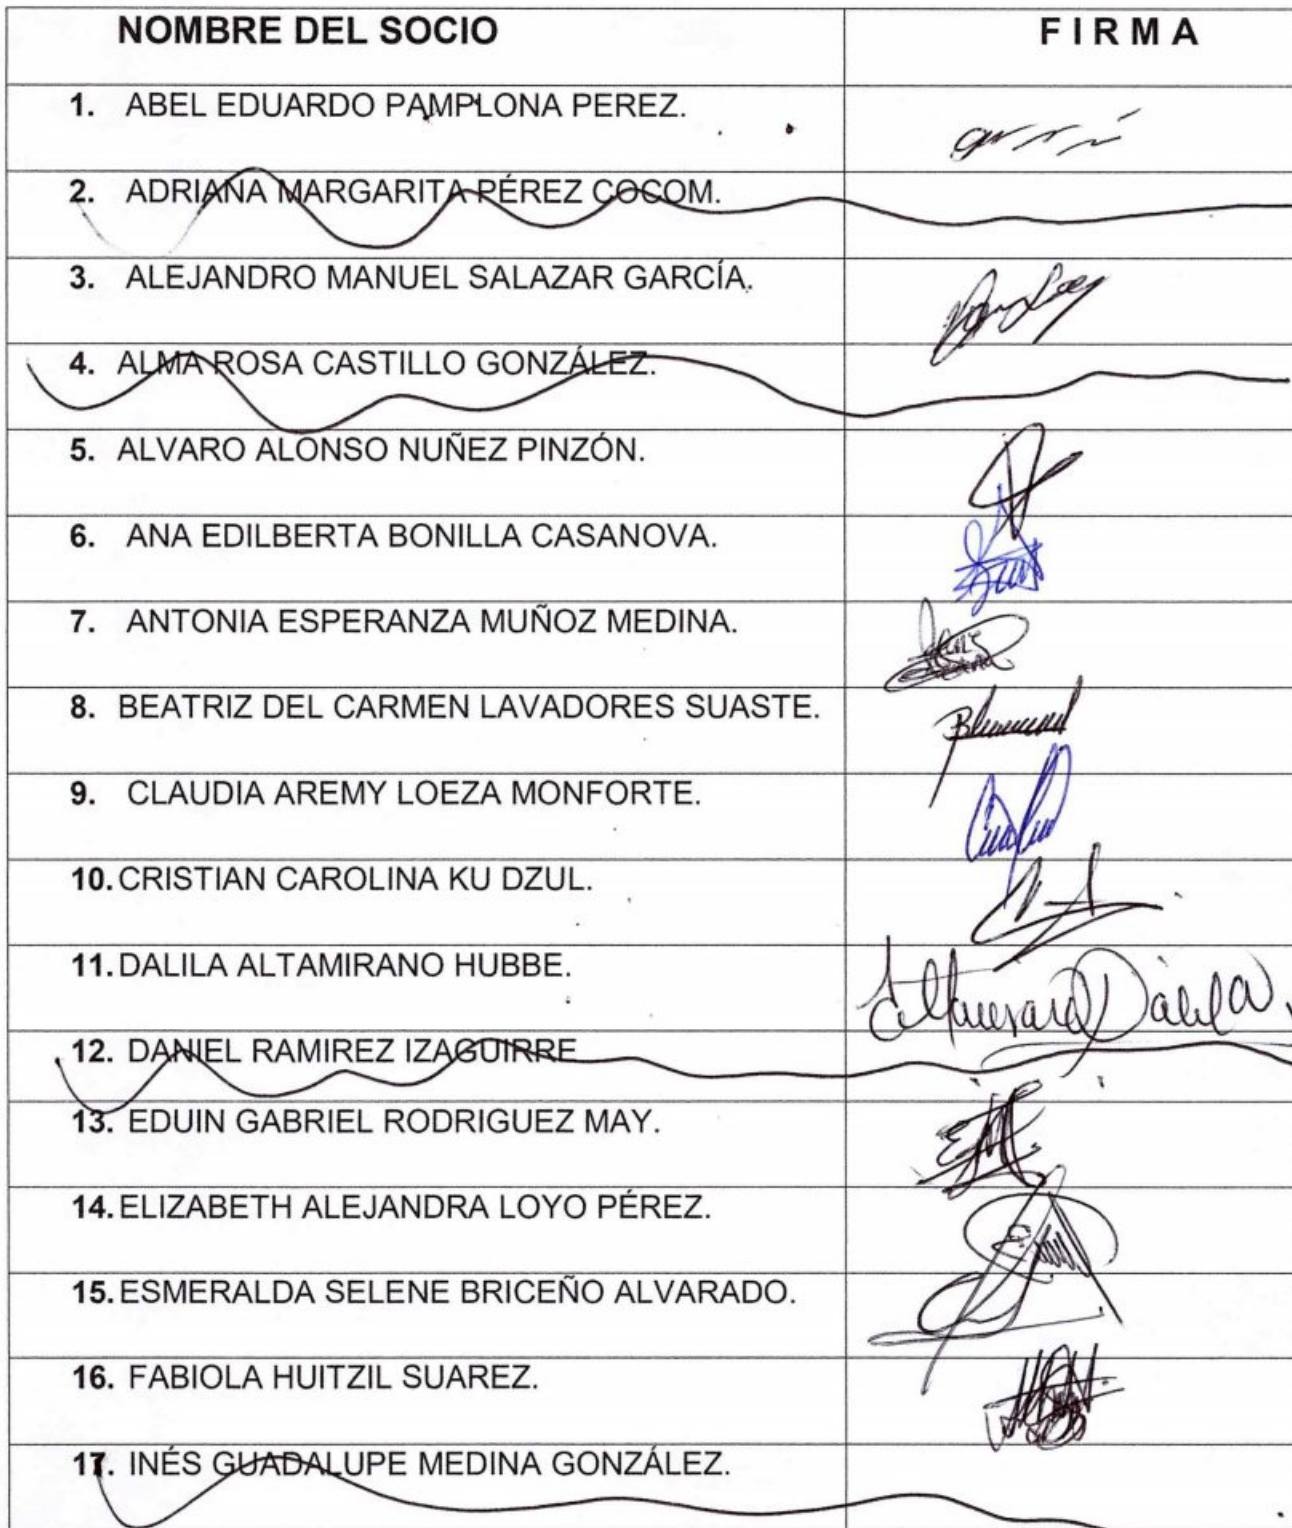 NOMBRE DEL SOCIO FIRMA
1. ABEL EDUARDO PAMPLONA PEREZ.
2. ADRIANA MARGARITA PÉREZ COCOM.
3. ALEJANDRO MANUEL SALAZAR GARCÍA.
4. ALMA ROSA CASTILLO GONZÁLEZ.
5. ALVARO ALONSO NUÑEZ PINZÓN.
6. ANA EDILBERTA BONILLA CASANOVA.
7. ANTONIA ESPERANZA MUÑOZ MEDINA.
8. BEATRIZ DEL CARMEN LAVADORES SUASTE.
9. CLAUDIA AREMY LOEZA MONFORTE.
10. CRISTIAN CAROLINA KU DZUL.
11. DALILA ALTAMIRANO HUBBE.
12. DANIEL RAMIREZ IZAGUIRRE
13. EDUIN GABRIEL RODRIGUEZ MAY.
14. ELIZABETH ALEJANDRA LOYO PÉREZ.
15. ESMERALDA SELENE BRICEÑO ALVARADO.
16. FABIOLA HUITZIL SUAREZ.
17. INÉS GUADALUPE MEDINA GONZÁLEZ.